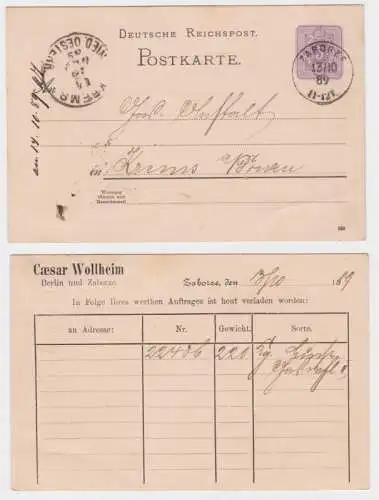 DEUTSCHE REICHSPOST.
POSTKARTE.
ZABORZE
13/10
89
11-12V.
KREMS
NIED. OESTERR.
14
10
89
am 14.10.89
in Krems Donau
Wohnung
(Strasse und
Hausnummer)
Cæsar Wollheim
Berlin und Zaborze
Zaborze, den 13/10 1889
In Folge Ihres werthen Auftrages ist heut verladen worden:
an Adresse: Nr. Gewicht. Sorte.
22406 220